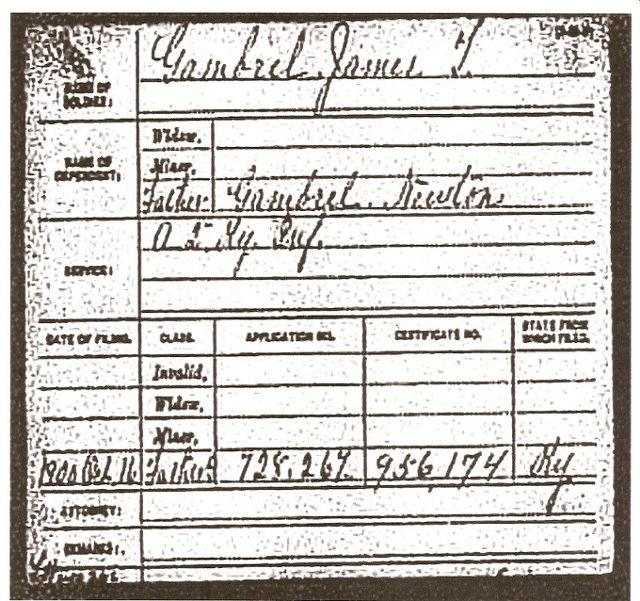 NAME OF SOLDIER: Gambrel James T
NAME OF DEPENDENT: Widow,
Minor,
Father Gambrel Newton
SERVICE: A 2" Ky. Inf.
DATE OF FILING. CLASS. APPLICATION NO. CERTIFICATE NO. STATE FROM WHICH FILED.
Invalid,
Widow,
Minor,
1900 Oct. 16 Father 728,267 956,174 Ky
ATTORNEY:
REMARKS: